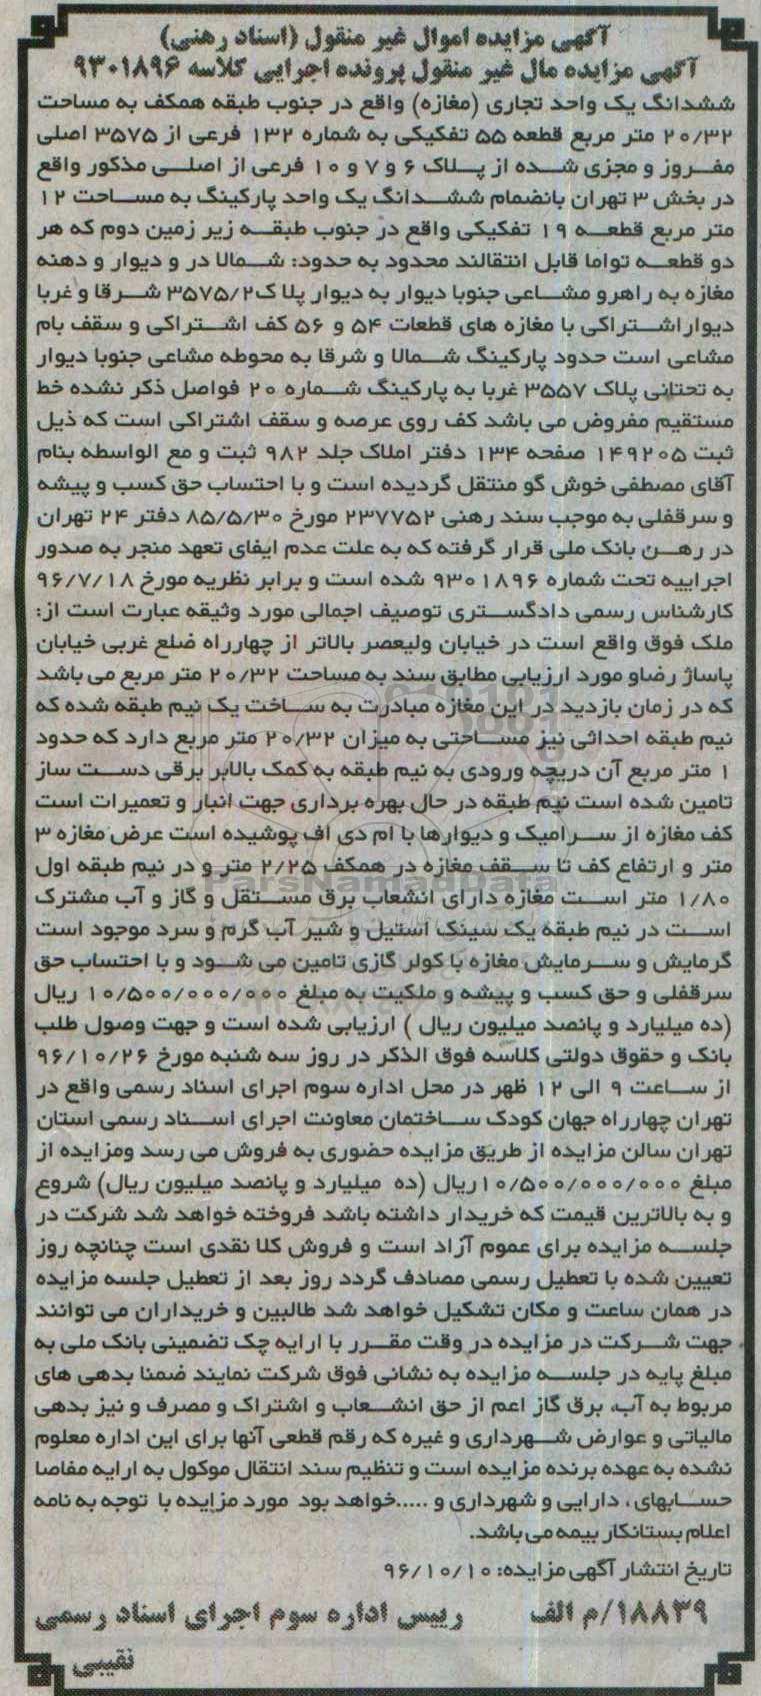 آگهی مزایده اموال غیر منقول (اسناد رهنی)
آگهی مزایده مال غیر منقول پرونده اجرایی کلاسه ۹۳۰۱۸۹۶
ششدانگ یک واحد تجاری (مغازه) واقع در جنوب طبقه همکف به مساحت
۲۰/۳۲ متر مربع قطعه ۵۵ تفکیکی به شماره ۱۳۲ فرعی از ۳۵۷۵ اصلی
مفروز و مجزی شده از پلاک ۶ و ۷ و ۱۰ فرعی از اصلی مذکور واقع
در بخش ۳ تهران بانضمام ششدانگ یک واحد پارکینگ به مساحت ۱۲
متر مربع قطعه ۱۹ تفکیکی واقع در جنوب طبقه زیر زمین دوم که هر
دو قطعه تواما قابل انتقالند محدود به حدود: شمالا در و دیوار و دهنه
مغازه به راهرو مشاعی جنوبا دیوار به دیوار پلا ک۳۵۷۵/۲ شرقا و غربا
دیواراشتراکی با مغازه های قطعات ۵۴ و ۵۶ کف اشتراکی و سقف بام
مشاعی است حدود پارکینگ شمالا و شرقا به محوطه مشاعی جنوبا دیوار
به تحتانی پلاک ۳۵۵۷ غربا به پارکینگ شماره ۲۰ فواصل ذکر نشده خط
مستقیم مفروض می باشد کف روی عرصه و سقف اشتراکی است که ذیل
ثبت ۱۴۹۲۰۵ صفحه ۱۳۴ دفتر املاک جلد ۹۸۲ ثبت و مع الواسطه بنام
آقای مصطفی خوش گو منتقل گردیده است و با احتساب حق کسب و پیشه
و سرقفلی به موجب سند رهنی ۲۳۷۷۵۲ مورخ ۸۵/۵/۳۰ دفتر ۲۴ تهران
در رهن بانک ملی قرار گرفته که به علت عدم ایفای تعهد منجر به صدور
اجراییه تحت شماره ۹۳۰۱۸۹۶ شده است و برابر نظریه مورخ ۹۶/۷/۱۸
کارشناس رسمی دادگستری توصیف اجمالی مورد وثیقه عبارت است از:
ملک فوق واقع است در خیابان ولیعصر بالاتر از چهارراه ضلع غربی خیابان
پاساژ رضاو مورد ارزیابی مطابق سند به مساحت ۲۰/۳۲ متر مربع می باشد
که در زمان بازدید در این مغازه مبادرت به ساخت یک نیم طبقه شده که
نیم طبقه احداثی نیز مساحتی به میزان ۲۰/۳۲ متر مربع دارد که حدود
۱ متر مربع آن دریچه ورودی به نیم طبقه به کمک بالابر برقی دست ساز
تامین شده است نیم طبقه در حال بهره برداری جهت انبار و تعمیرات است
کف مغازه از سرامیک و دیوارها با ام دی اف پوشیده است عرض مغازه ۳
متر و ارتفاع کف تا سقف مغازه در همکف ۲/۲۵ متر و در نیم طبقه اول
۱/۸۰ متر است مغازه دارای انشعاب برق مستقل و گاز و آب مشترک
است در نیم طبقه یک سینک استیل و شیر آب گرم و سرد موجود است
گرمایش و سرمایش مغازه با کولر گازی تامین می شود و با احتساب حق
سرقفلی و حق کسب و پیشه و ملکیت به مبلغ ۱۰/۵۰۰/۰۰۰/۰۰۰ ریال
(ده میلیارد و پانصد میلیون ریال ) ارزیابی شده است و جهت وصول طلب
بانک و حقوق دولتی کلاسه فوق الذکر در روز سه شنبه مورخ ۹۶/۱۰/۲۶
از ساعت ۹ الی ۱۲ ظهر در محل اداره سوم اجرای اسناد رسمی واقع در
تهران چهارراه جهان کودک ساختمان معاونت اجرای اسناد رسمی استان
تهران سالن مزایده از طریق مزایده حضوری به فروش می رسد ومزایده از
مبلغ ۱۰/۵۰۰/۰۰۰/۰۰۰ریال (ده میلیارد و پانصد میلیون ریال) شروع
و به بالاترین قیمت که خریدار داشته باشد فروخته خواهد شد شرکت در
جلسه مزایده برای عموم آزاد است و فروش کلا نقدی است چنانچه روز
تعیین شده با تعطیل رسمی مصادف گردد روز بعد از تعطیل جلسه مزایده
در همان ساعت و مکان تشکیل خواهد شد طالبین و خریداران می توانند
جهت شرکت در مزایده در وقت مقرر با ارایه چک تضمینی بانک ملی به
مبلغ پایه در جلسه مزایده به نشانی فوق شرکت نمایند ضمنا بدهی های
مربوط به آب، برق گاز اعم از حق انشعاب و اشتراک و مصرف و نیز بدهی
مالیاتی و عوارض شهرداری و غیره که رقم قطعی آنها برای این اداره معلوم
نشده به عهده برنده مزایده است و تنظیم سند انتقال موکول به ارایه مفاصا
حسابهای ، دارایی و شهرداری و .....خواهد بود مورد مزایده با توجه به نامه
اعلام بستانکار بیمه می باشد.
تاریخ انتشار آگهی مزایده: ۹۶/۱۰/۱۰
۱۸۸۳۹/م الف رییس اداره سوم اجرای اسناد رسمی
نقیبی
ParsNamadData